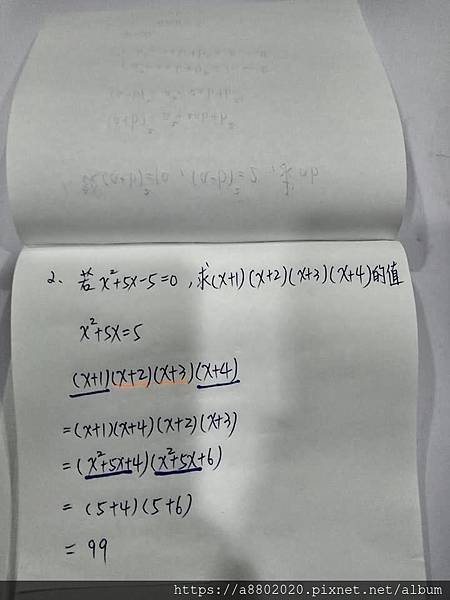 2、若x²+5x-5=0,求(x+1)(x+2)(x+3)(x+4)的值
x²+5x=5
(x+1)(x+2)(x+3)(x+4)
=(x+1)(x+4)(x+2)(x+3)
=(x²+5x+4)(x²+5x+6)
=(5+4)(5+6)
=99
https://a8802020.pixnet.net/album